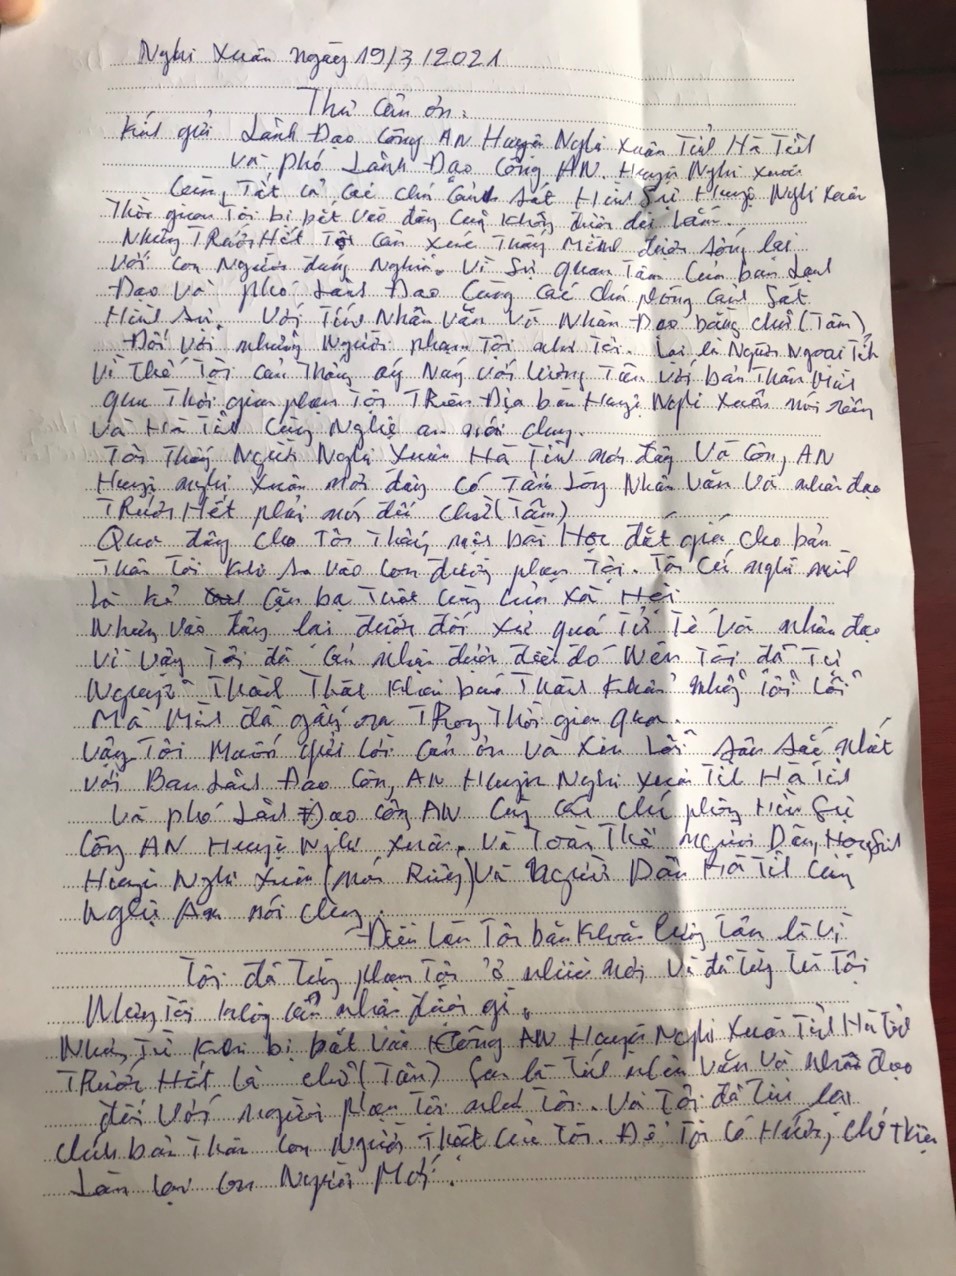 Nghi Xuân ngày 19/3/2021
Thư Cảm ơn.
Kính gửi Lảnh Đạo Công AN Huyện Nghi Xuân Tỉnh Hà Tĩnh
Và phó Lảnh Đạo Công AN. Huyện Nghi Xuân
Cùng Tất cả các chú Cảnh Sát Hình Sự Huyện Nghi Xuân
Thời gian Tôi bị bắt vào đây Cũng không dười dài lắm.
Nhưng TRước Hết Tôi Cảm xúc Thấy Mình được sống lại
Với con Người đúng Nghĩa. Vì Sự quan Tâm Của ban Lảnh
Đạo Và phó Lảnh Đạo Cùng các chú phòng cảnh Sát
Hình Sự. Với Tính Nhân Văn Và Nhân Đạo bằng chử (Tâm)
Đối với những Người phạm Tội như Tôi. Lại là Người Ngoại Tỉnh
Vì Thế Tôi cảm Thấy áy Náy với lương Tâm với bản Thân Mình
qua Thời gian phạm Tội TRên Địa bàn Huyện Nghi Xuân nói riêng
Và Hà Tĩnh Cùng Nghệ an nói chung.
Tôi Thấy Người Nghi Xuân Hà Tỉnh nơi đây Và Công AN
Huyện nghi Xuân nơi đây Có Tấm Lòng Nhân Văn Và nhân đạo
TRước Hết phải nói đến chử (Tâm)
Qua đây cho Tôi Thấy một bài Học đắt giá cho bản
Thân Tôi khi sa vào con đường phạm Tội. Tôi Cứ nghĩ mình
là kẻ Cặn bã Thật Cùng Của Xã Hội
Nhưng vào đây lại được đối xử quá Tử Tế Và nhân đạo
Vì Vậy Tôi đã Cảm nhận được điều đó Nên Tôi đã Tự
Nguyện Thành Thật Khai báo Thành Khẩn những Tội Lỗi
Mà Mình đã gây ra TRong Thời gian qua.
Vậy Tôi Muốn gửi lời Cảm ơn Và Xin Lỗi sâu sắc nhất
với Ban Lảnh Đạo Công AN Huyện Nghi Xuân Tỉnh Hà Tỉnh
Và phó Lảnh Đạo công AN Cùng các chú phòng Hình Sự
Công AN Huyện Nghi Xuân. Và Toàn Thể Người Dân, Học Sinh
Huyện Nghi Xuân (Nói Riêng) Và Người Dân Hà Tỉnh Cùng
Nghệ An nói chung.
Điều Làm Tôi băn khoăn lương Tâm là Vì
Tôi đã Từng phạm Tội ở nhiều nơi Và đã Từng Tù Tội
Nhưng Tôi không Cảm nhận được gì.
Nhưng Từ khi bị bắt Vào Công AN Huyện Nghi Xuân Tỉnh Hà Tỉnh
TRước Hết là chử (Tâm) Sau là Tính nhân Văn Và nhân đạo
đối Với người phạm Tội như Tôi. Và Tôi đã Tìm lại
chính bản Thân Con Người Thật Của Tôi. Để Tôi Có Hướng chớ Thiện
Làm lại Con Người Mới.